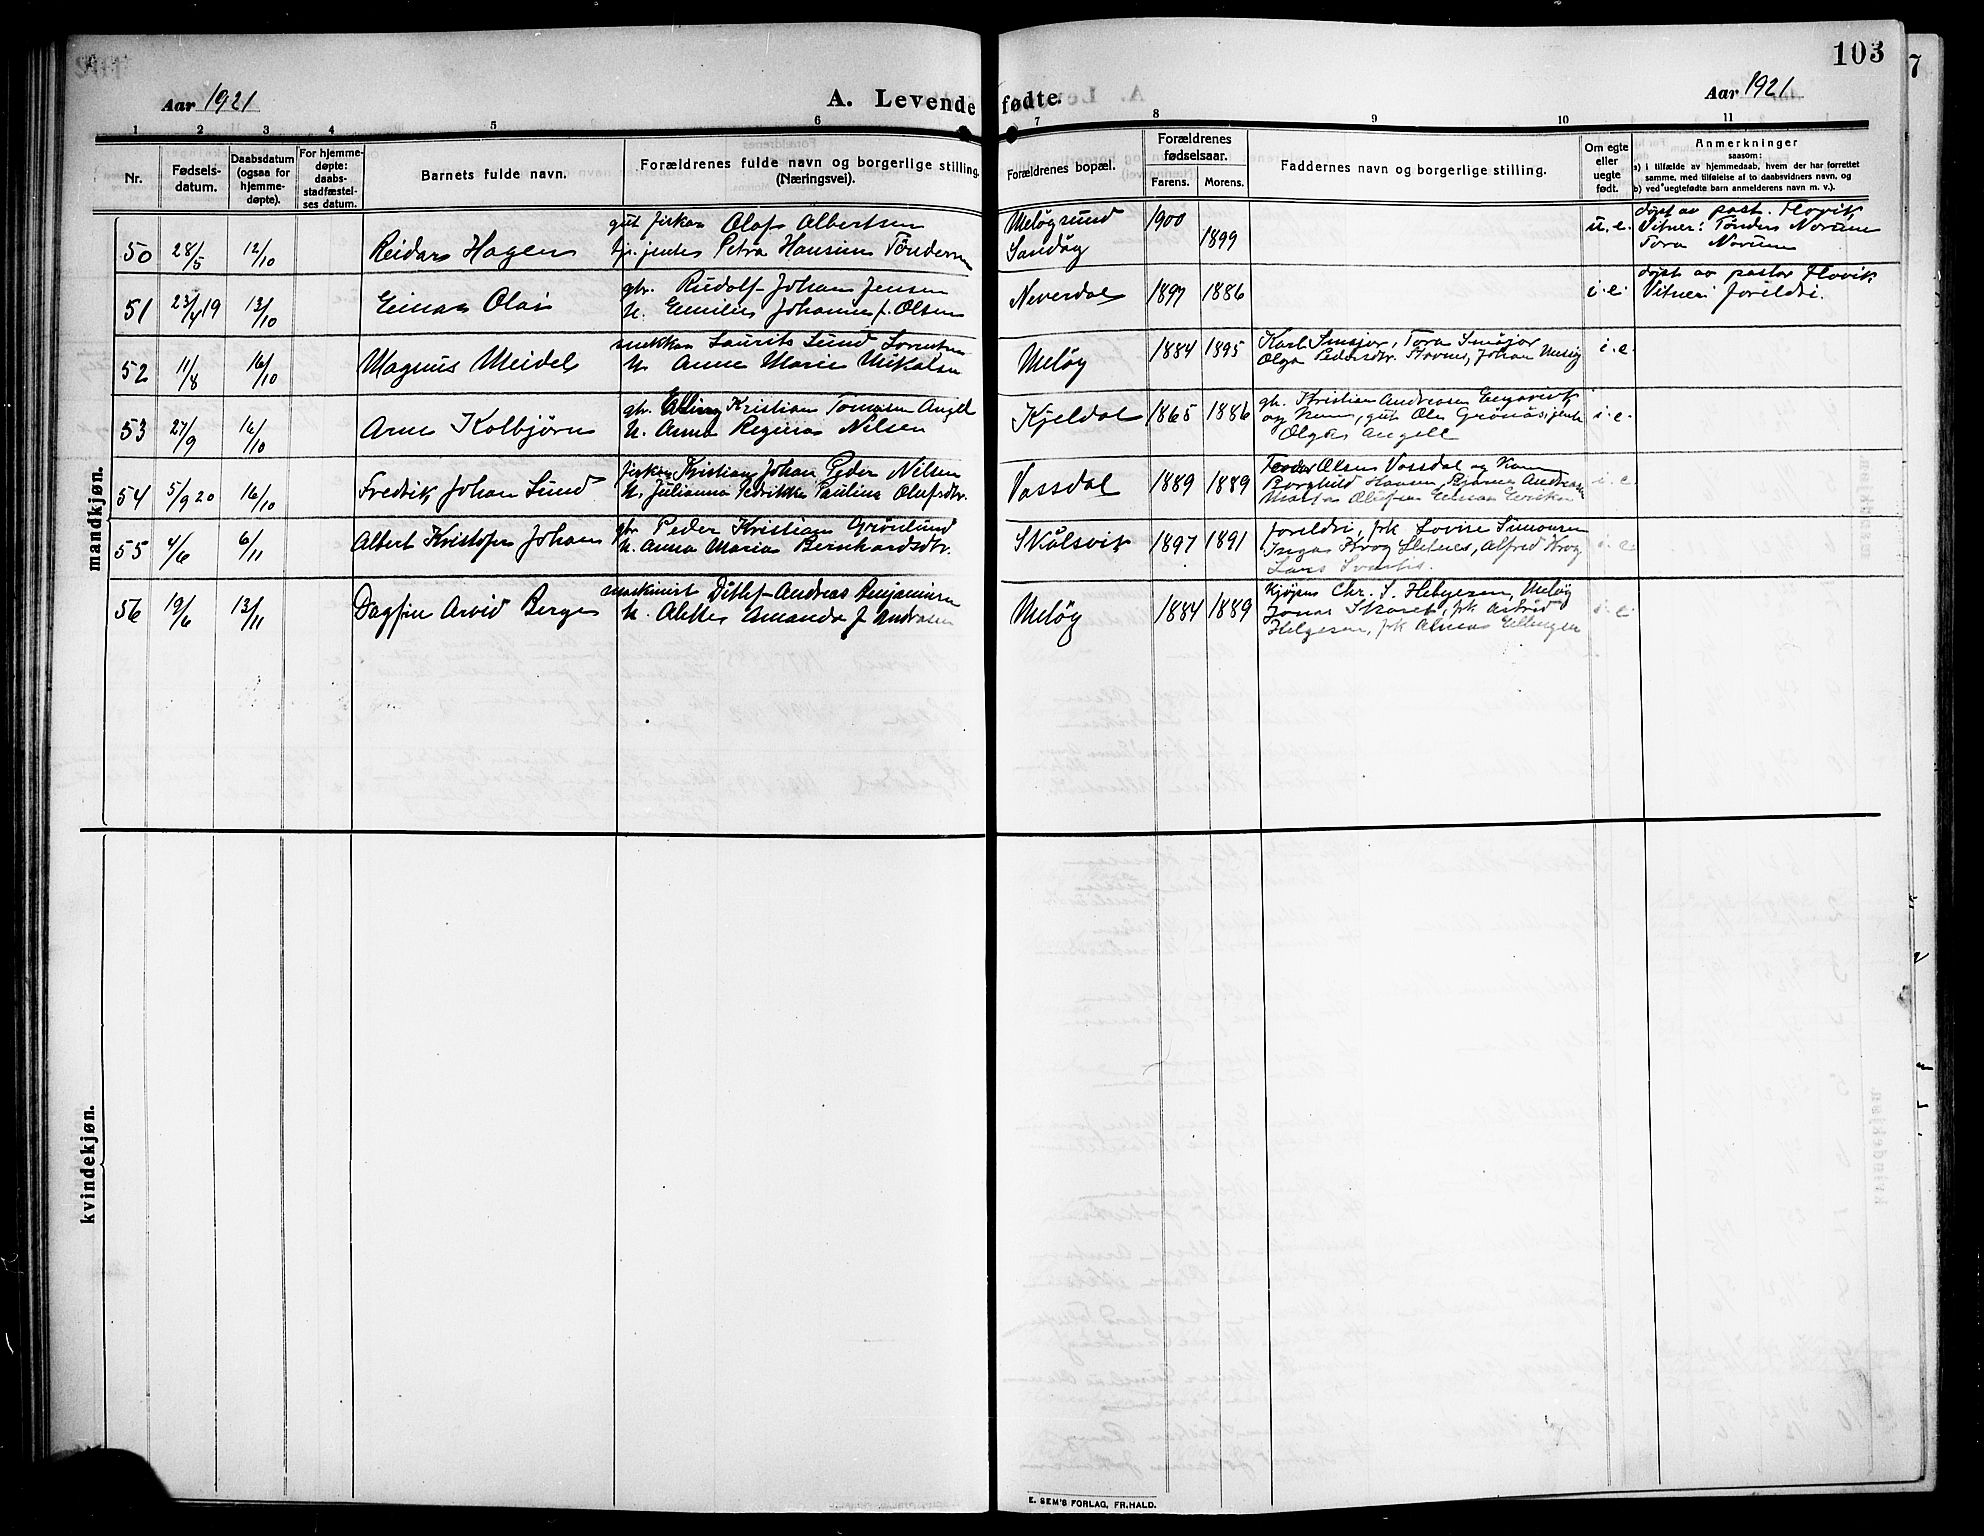 103
Aar 1921
A. Levende fødte.
Aar 1921
1 2 3 4 5 6 7 8 9 10 11
Nr.
Fødsels-
datum.
Daabsdatum
(ogsaa for
hjemme-
døpte).
For hjemme-
døpte:
daabs-
stadfæstel-
ses datum.
Barnets fulde navn.
Forældrenes fulde navn og borgerlige stilling.
(Næringsvei).
Forældrenes bopæl.
Forældrenes
fødselsaar.
Farens. Morens.
Faddernes navn og borgerlige stilling.
Om egte
eller
uegte
født.
Anmerkninger
saasom:
a) i tilfælde av hjemmedaab, hvem der har forrettet
samme, med tilføielse af to daabsvidners navn, og
b) ved uegtefødte barn anmelderens navn m. v.).
mandkjøn.
50 28/5 12/10 Reidar Hagen
gut fisker Olaf Albertsen
tj. jente Petra Hansine Tönder
Meløysund
Sandøy
1900 1899
u. e.
døpt av past. Hovik
Vitner: Tönder Norum
Tora Norum
51 23/4 19 13/10 Einar Olai
gbr. Rudolf Johan Jensen
h. Emilie Johanne f. Olsen
Neverdal 1897 1886
i. e.
døpt av pastor Hovik
Vitner: foreldri.
52 11/8 16/10 Magnus Meidel
snekker Laurits Lund
h. Anne Marie Mikalsen
Meløy 1884 1895
Karl Småjor, Tora Småjor
Olga Pedersdtr. Johan
i. e.
53 27/9 16/10 Arne Kolbjørn
gbr. Elling Kristian Tomasen Angell
h. Anna Regina Nilsen
Kjeldal 1865 1886
gb. Kristian Andreasen Engavik
og kone, gut Ole Grønås, jente
Olga Angell
i. e.
54 5/9 20 16/10 Fredrik Johan Lund
fisker Kristian Johan Peder Nilsen
h. Julianna Fredrikke Paulina Olufsdtr.
Vassdal 1889 1889
Olsen Vassdal og kone
Borghild Hansen, Bjarne Andreasen
Marta Olufsen Einar Eriksen
i. e.
55 4/6 6/11 Albert Kristofer Johan
gbr Peder Kristian Grönlund
h. Anna Maria Bernhardsdtr.
Skålsvik 1897 1891
foreldri, frk Lovise Simonsen
Inga Krog Sletnes, Alfred Krog
Lars
i. e.
56 19/6 13/11 Dagfin Arvid Berge
maskinist Ditlef Andreas Benjaminsen
h. Alette Amanda f Andrasen
Meløy 1884 1889
Kjøpm Chr. S. Helgesen, Meløy
Jonas Skaret, frk Astrid
Helgesen, frk Ellingsen
i. e.
kvindekjøn.
E. SEM'S FORLAG, FR.HALD.